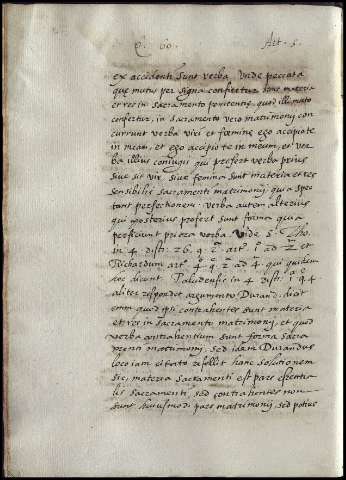 Q. 60. Art. 5.
ex accidenti sunt verba. Unde peccata
que mutus per signa confitetur sunt materia
et res in sacramento penitentie quod illi muto
confertur, in sacramento vero matrimonij con
currunt verba viri et femine ego accipio te
in meam, et ego accipio te in meum, et ver
ba illius coniugis qui profert verba prius
sive sit vir, sive femina sunt materia et res
sensibilis sacramenti matrimonij quia spe
tant perfectionem: verba autem alterius
qui posterius profert sunt forma quia
perficiunt priora verba. Vide S. Tho
in 4 disti. 26. q. 2 art. 1 ad 2 et
Richardum art. 4 q. 2 ad 4. qui quidem
hoc dicunt. Paludensis in 4 disti. 1 q. 4
aliter respondet argumento Durand. dicit
enim quod ipsi contrahentes sunt materia
et res in sacramento matrimonij, et quod
verba contrahentium sunt forma sacra
menti matrimonij, sed idem Durandus
loco iam citato refellit hanc solutionem
sic, materia sacramenti est pars essentia
lis sacramenti, sed contrahentes non
sunt huiusmodi pars matrimonij, sed potius